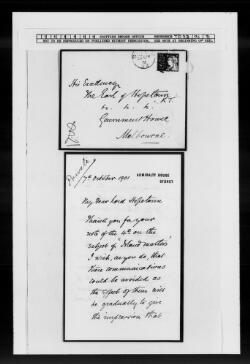 NOT TO BE REPRODUCED OR PUBLISHED WITHOUT PERMISSION.
His Excellency
The Earl of Hopetoun
K.T.
Government House
Melbourne
Private
ADMIRALTY HOUSE
SYDNEY
7th October 1901
My dear Lord Hopetoun
Thank you for your
note of the 4th on the
subject of Island matters
I wish, as you do, that
these communications
could be avoided as
the effect of them will
be gradually to give
the impression that